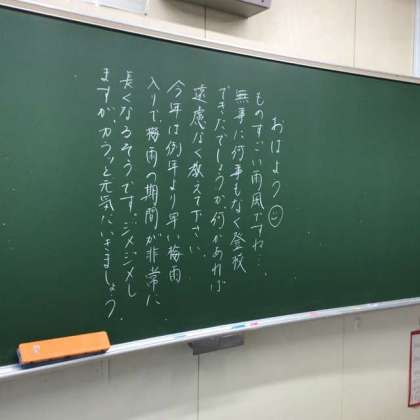 おはよう☺
ものすごい雨風ですね…
無事に何事もなく登校
できたでしょうか。何かあれば
遠慮なく教えて下さい。
今年は例年より早い梅雨
入りで、梅雨の期間が非常に
長くなるそうです。ジメジメし
ますが、カラッと元気にいきましょう。